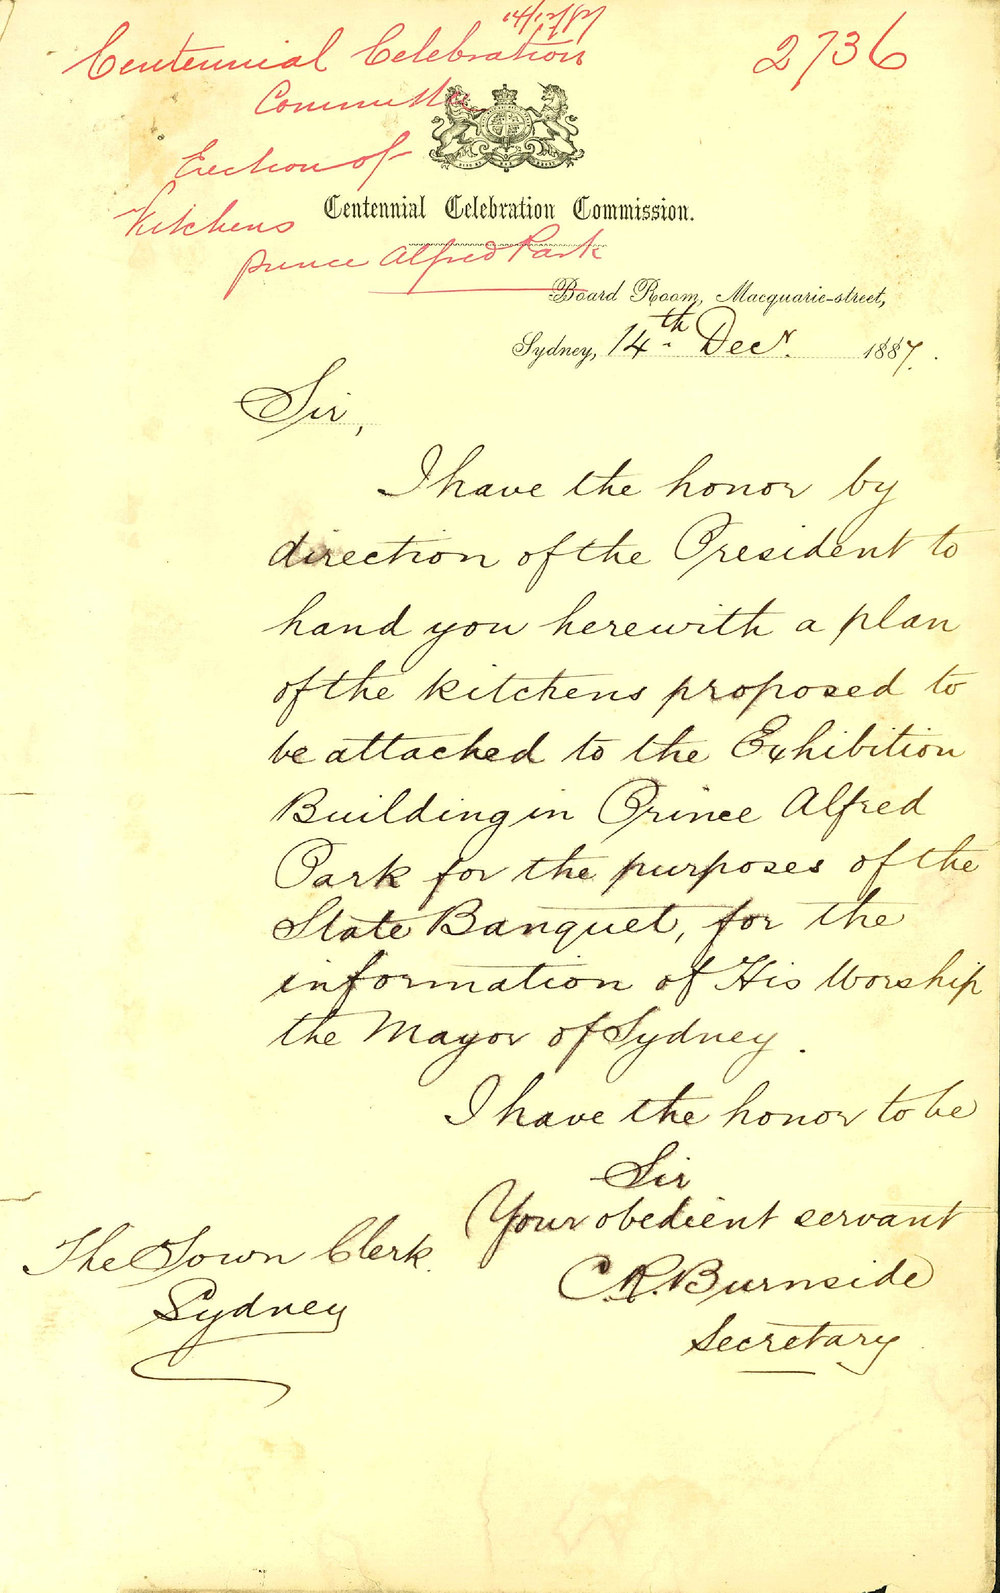 14/12/87
Centennial Celebration
2736
Committee
Erection of
Kitchens
Centennial Celebration Commission.
Prince Alfred Park
Board Room, Macquarie-street,
Sydney, 14th Decr. 1887.
Sir,
I have the honor by
direction of the President to
hand you herewith a plan
of the kitchens proposed to
be attached to the Exhibition
Building in Prince Alfred
Park for the purposes of the
State Banquet, for the
information of His Worship
the Mayor of Sydney.
I have the honor to be
Sir
Your obedient servant
The Town Clerk.
C.R. Burnside
Sydney
Secretary